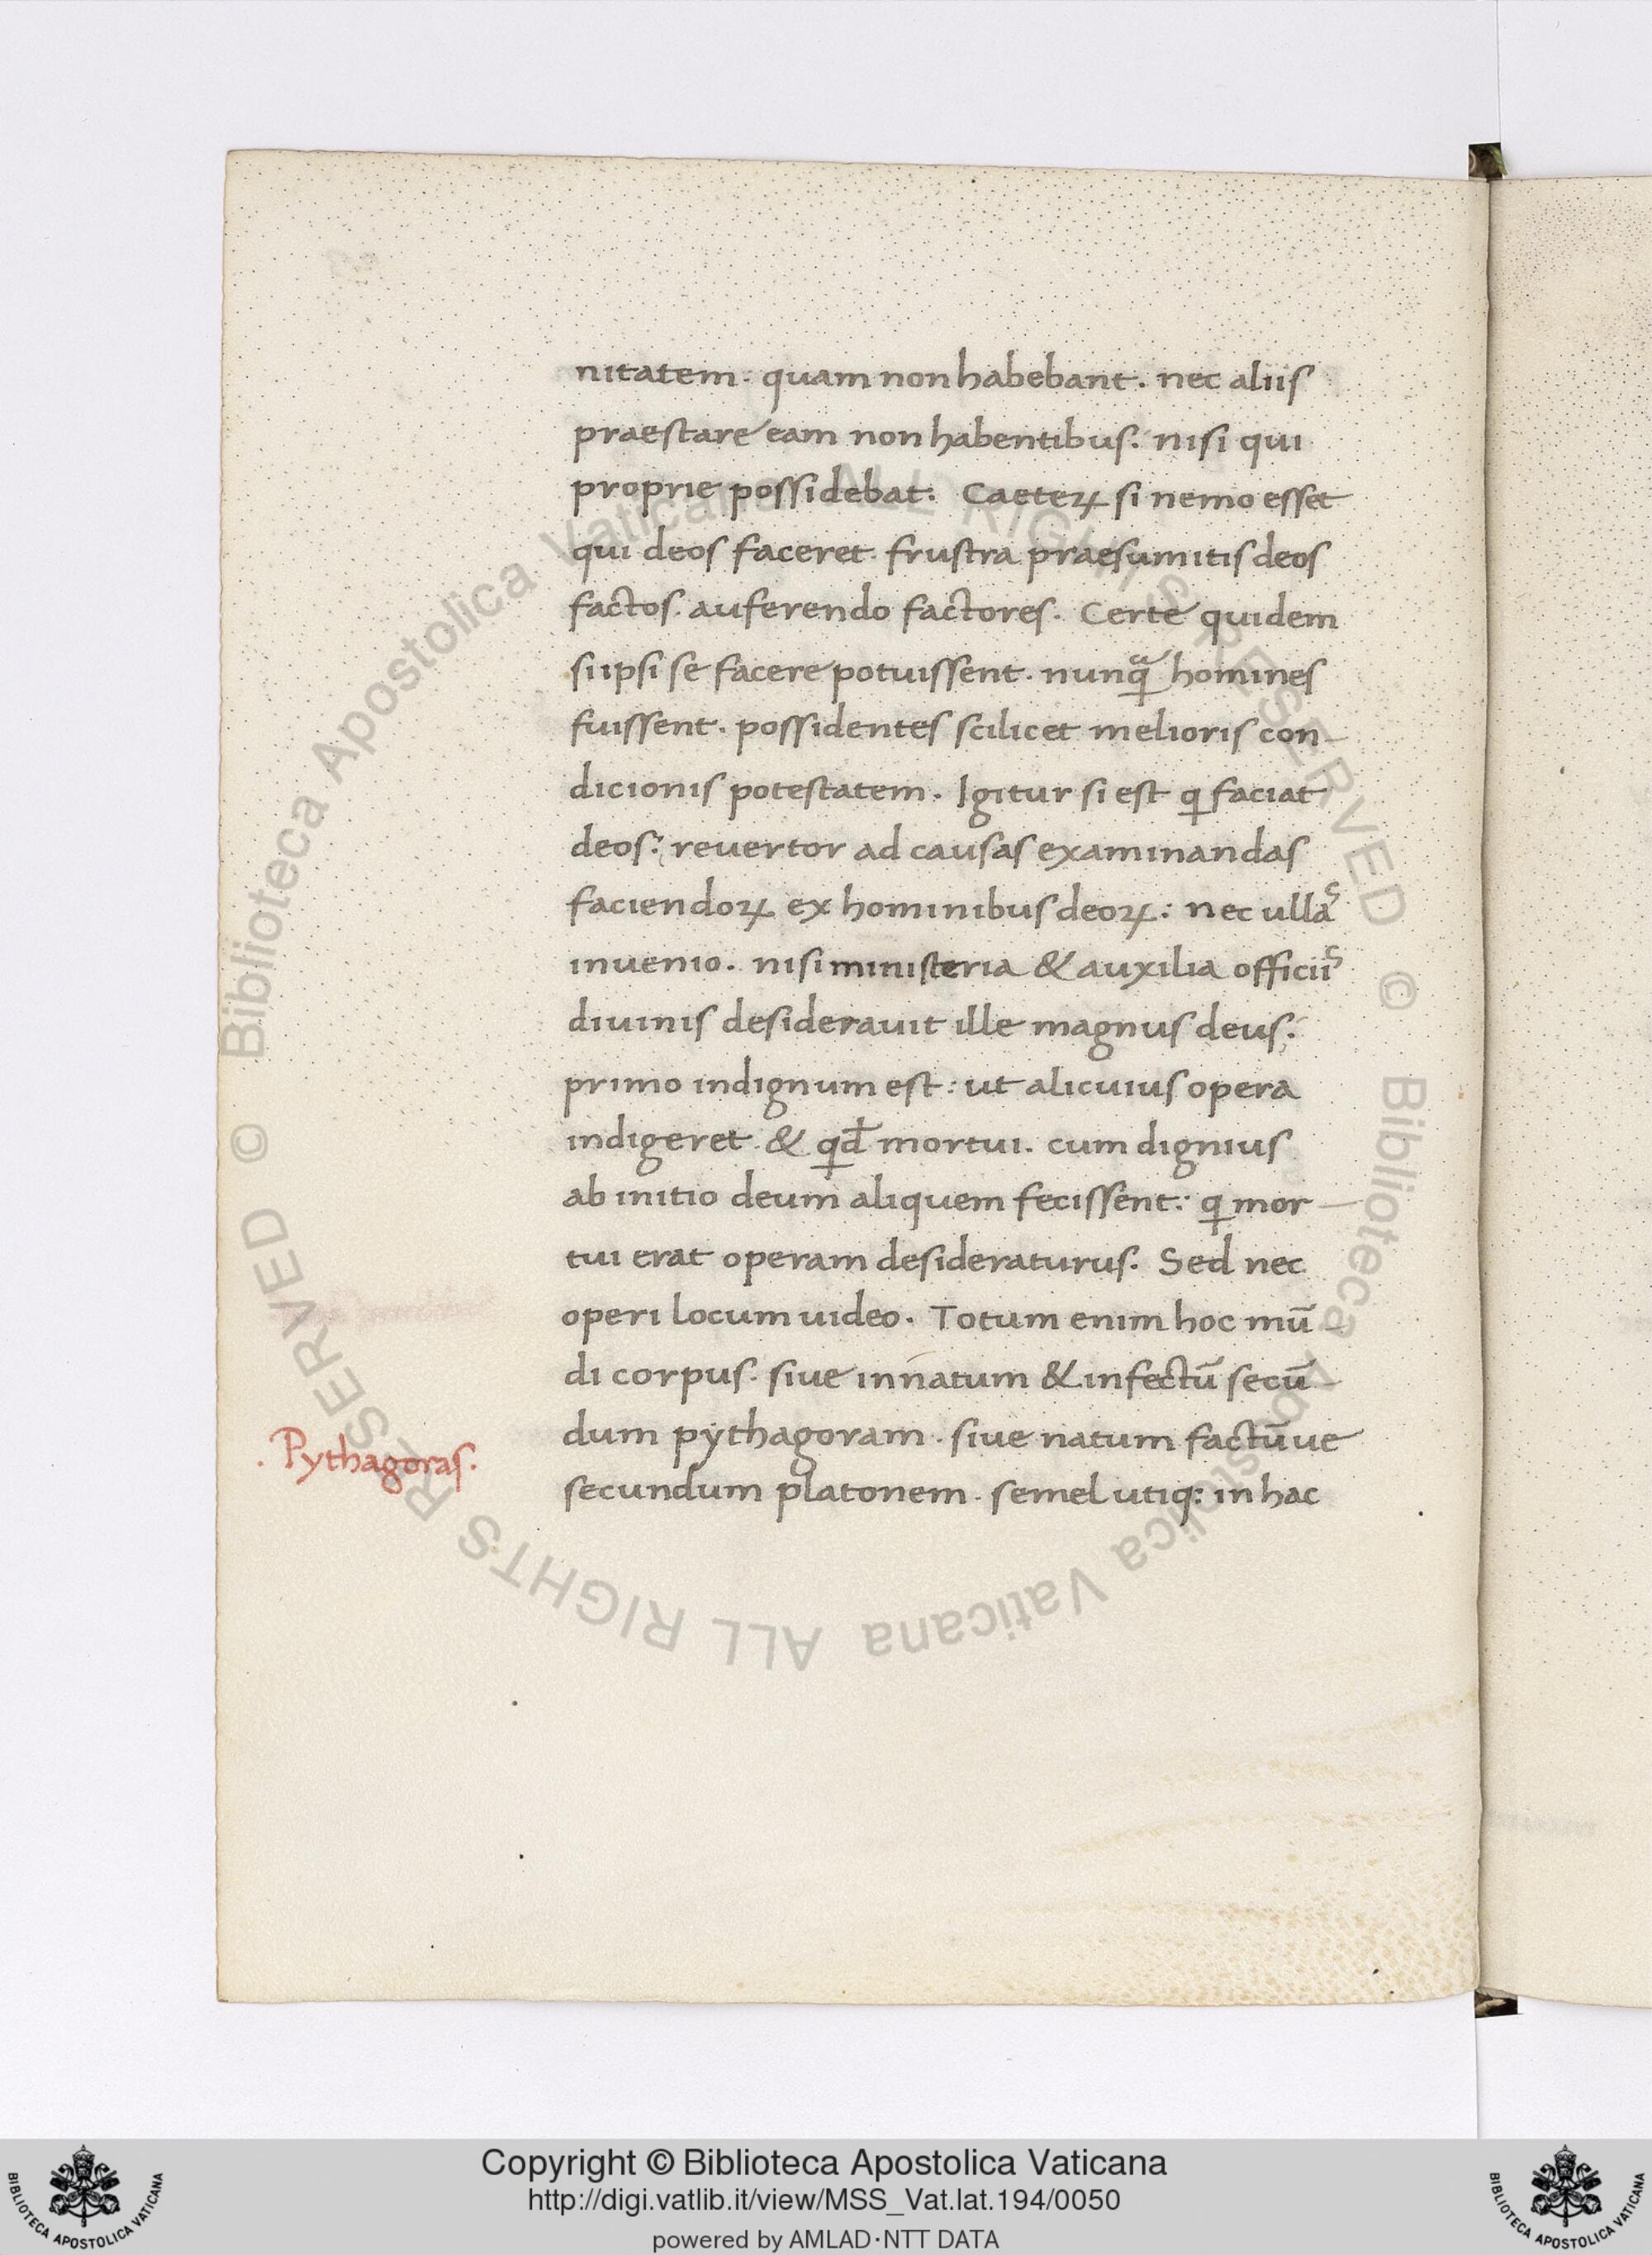 nitatem. quam non habebant. nec aliis
praestare eam non habentibus. nisi qui
proprie possidebat. Caeteꝝ si nemo esset
qui deos faceret. frustra praesumitis deos
factos. auferendo factores. Certe quidem
si ipsi se facere potuissent. nunqᷓ homines
fuissent. possidentes scilicet melioris con-
dicionis potestatem. Igitur si est ꝗ faciat
deos: revertor ad causas examinandas
faciendoꝝ ex hominibus deoꝝ: nec ullas
invenio. nisi ministeria & auxilia officiis
divinis desideravit ille magnus deus.
primo indignum est: ut alicuius opera
indigeret. & qđ mortui. cum dignius
ab initio deum aliquem fecissent: ꝗ mor-
tui erat operam desideraturus. Sed nec
operi locum video. Totum enim hoc mū-
di corpus. sive innatum & infectū secū-
dum pythagoram. sive natum factūve
. Pythagoras.
secundum platonem. semel utiq: in hac
Biblioteca Apostolica Vaticana ALL RIGHTS RESERVED ©
Biblioteca Apostolica Vaticana ALL RIGHTS RESERVED ©
Copyright © Biblioteca Apostolica Vaticana
http://digi.vatlib.it/view/MSS_Vat.lat.194/0050
powered by AMLAD·NTT DATA
BIBLIOTECA APOSTOLICA VATICANA
BIBLIOTECA APOSTOLICA VATICANA